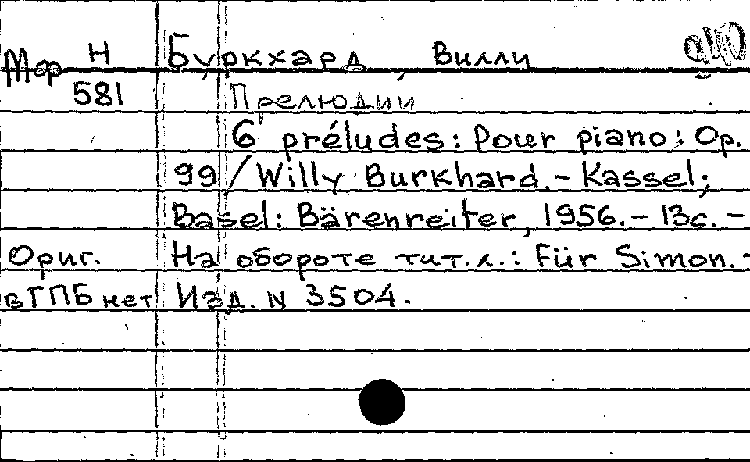 Мф Н Буркхард, Вилли
581 Прелюдии
6 préludes: Pour piano: Op.
99 / Willy Burkhard. - Kassel;
Basel: Bärenreiter, 1956. - 13с. -
Ориг. На обороте тит.л.: Für Simon. -
в ГПБ нет Изд. N 3504.